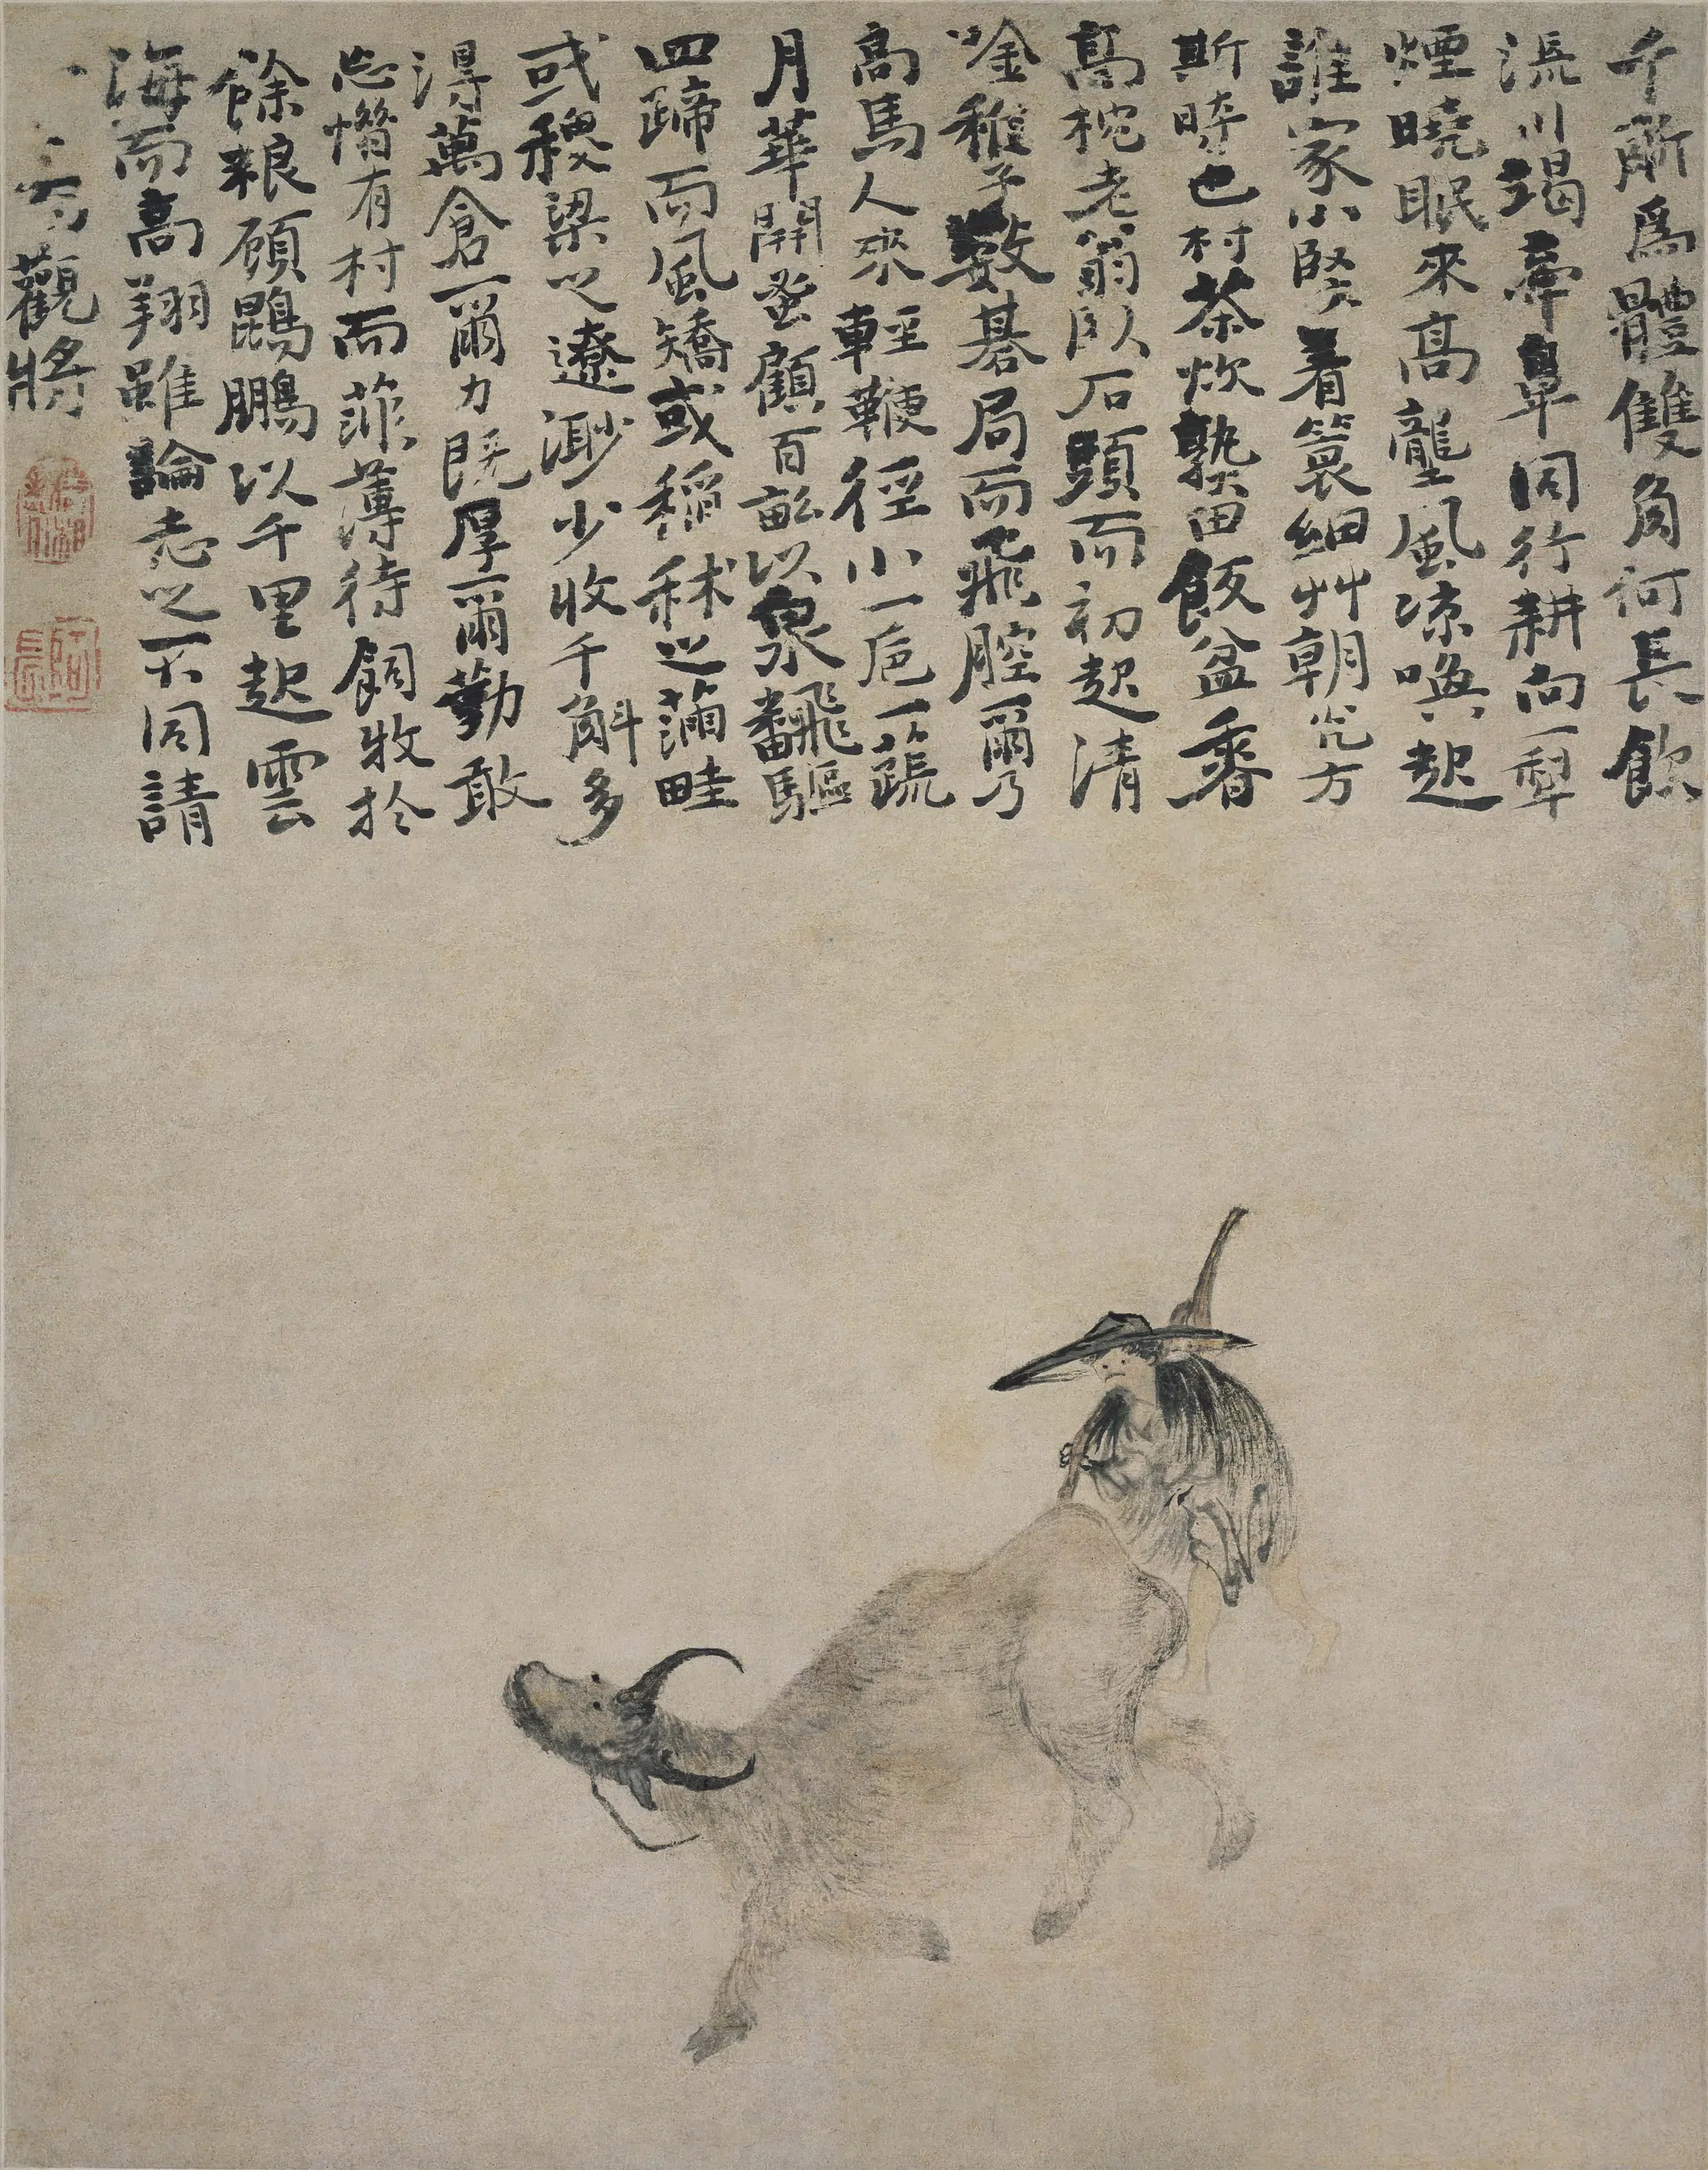 千斤爲體雙角何長飲
流川竭牽鼻同行耕向一犁
煙曉眠來高壟風凉喚起
誰家小豎着簑細艸朝光方
斯時也村茶炊熟田飯盆香
高枕老翁臥石頭而初起清
唫稚子數碁局而飛腔爾乃
高馬人來輕鞭徑小一巵一蔬
月華開蚤顧百畝以泉飜驅
四蹄而風矯或稻秫之蒲畦
或稷粱之遼渺少收千斛多
得萬倉爾力既厚爾勤敢
忘憯有村而菲薄待飼牧於
餘粮顧鵾鵬以千里起雲
海而高翔雖論志之不同請
觀將